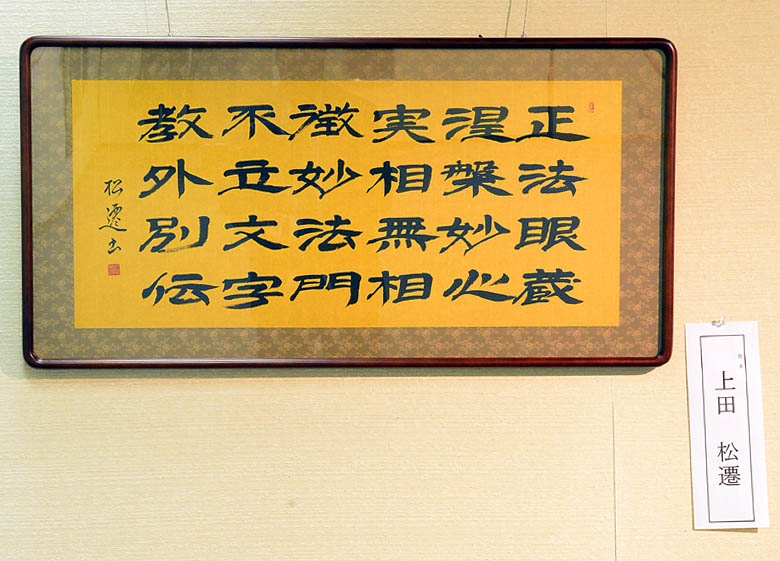 正法眼蔵
涅槃妙心
実相無相
微妙法門
不立文字
教外別伝
松遷書
上田 松遷